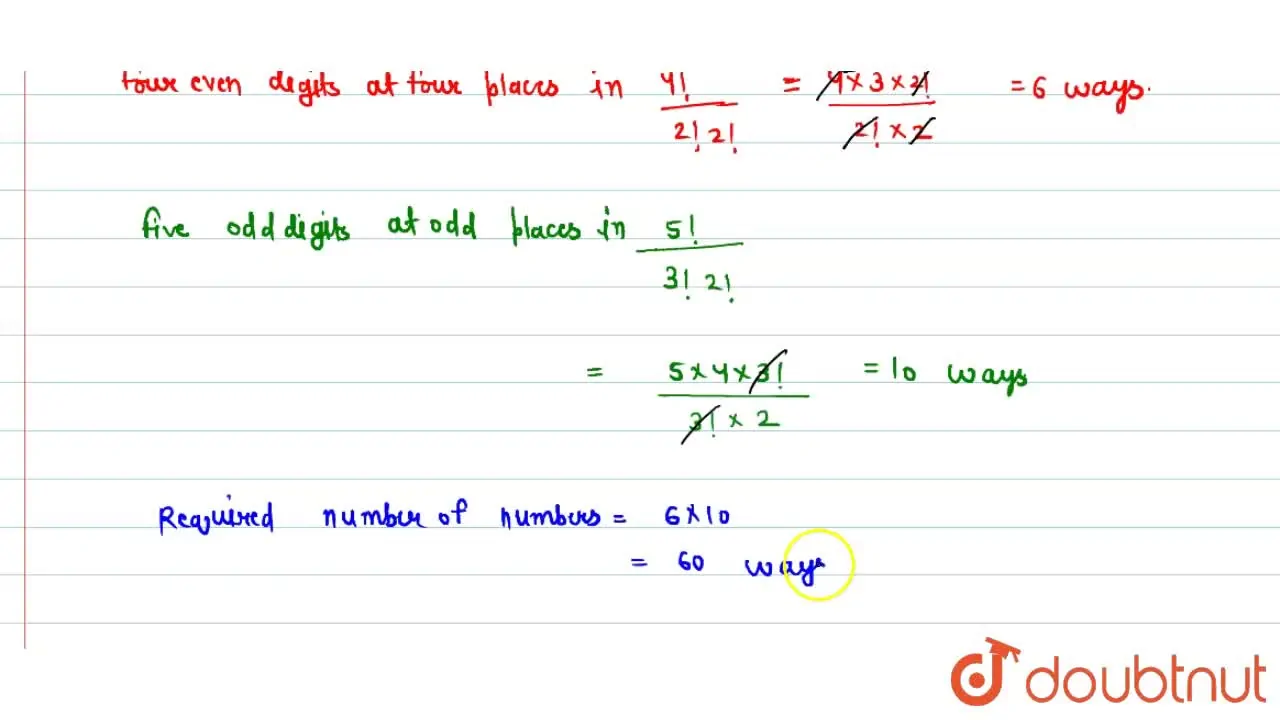 four even digits at four places in 4! / 2! 2! = 4 × 3 × 2! / 2! × 2 = 6 ways.
five odd digits at odd places in 5! / 3! 2!
= 5 × 4 × 3! / 3! × 2 = 10 ways
Required number of numbers = 6 × 10
= 60 ways
doubtnut